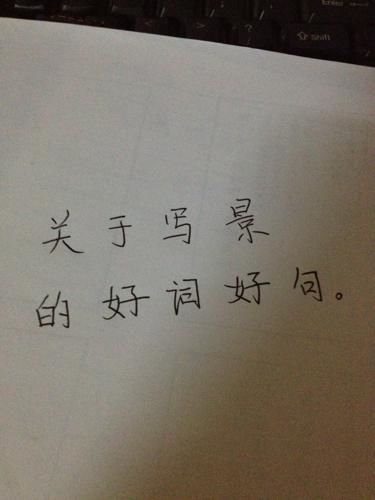 Enter
?
⇧Shift
关于写景
的好词好句。